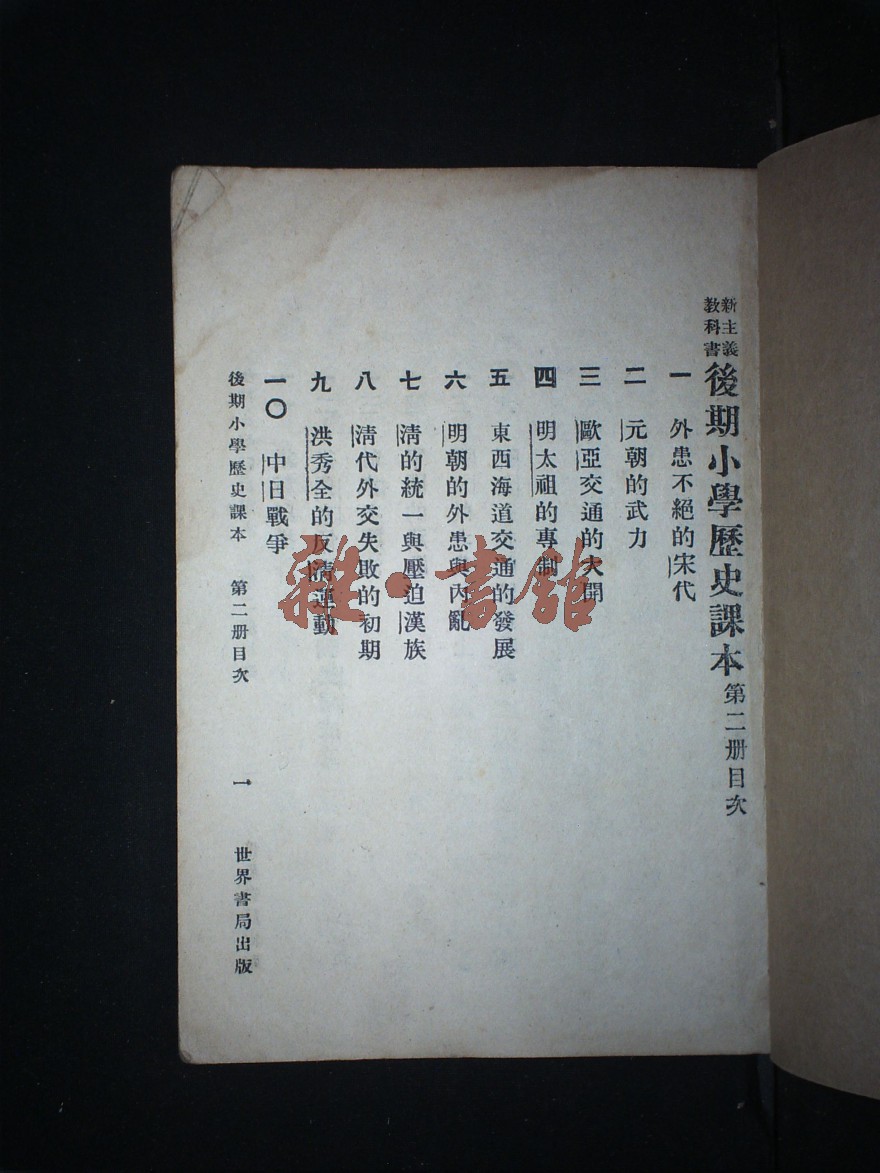 新主義
教科書
後期小學歷史課本 第二册目次
一 外患不絕的宋代
二 元朝的武力
三 歐亞交通的大開
四 明太祖的專制
五 東西海道交通的發展
六 明朝的外患與內亂
七 清的統一與壓迫漢族
八 清代外交失敗的初期
九 洪秀全的反清運動
一〇 中日戰爭
後期小學歷史課本 第二册目次 一 世界書局出版
雜·書館